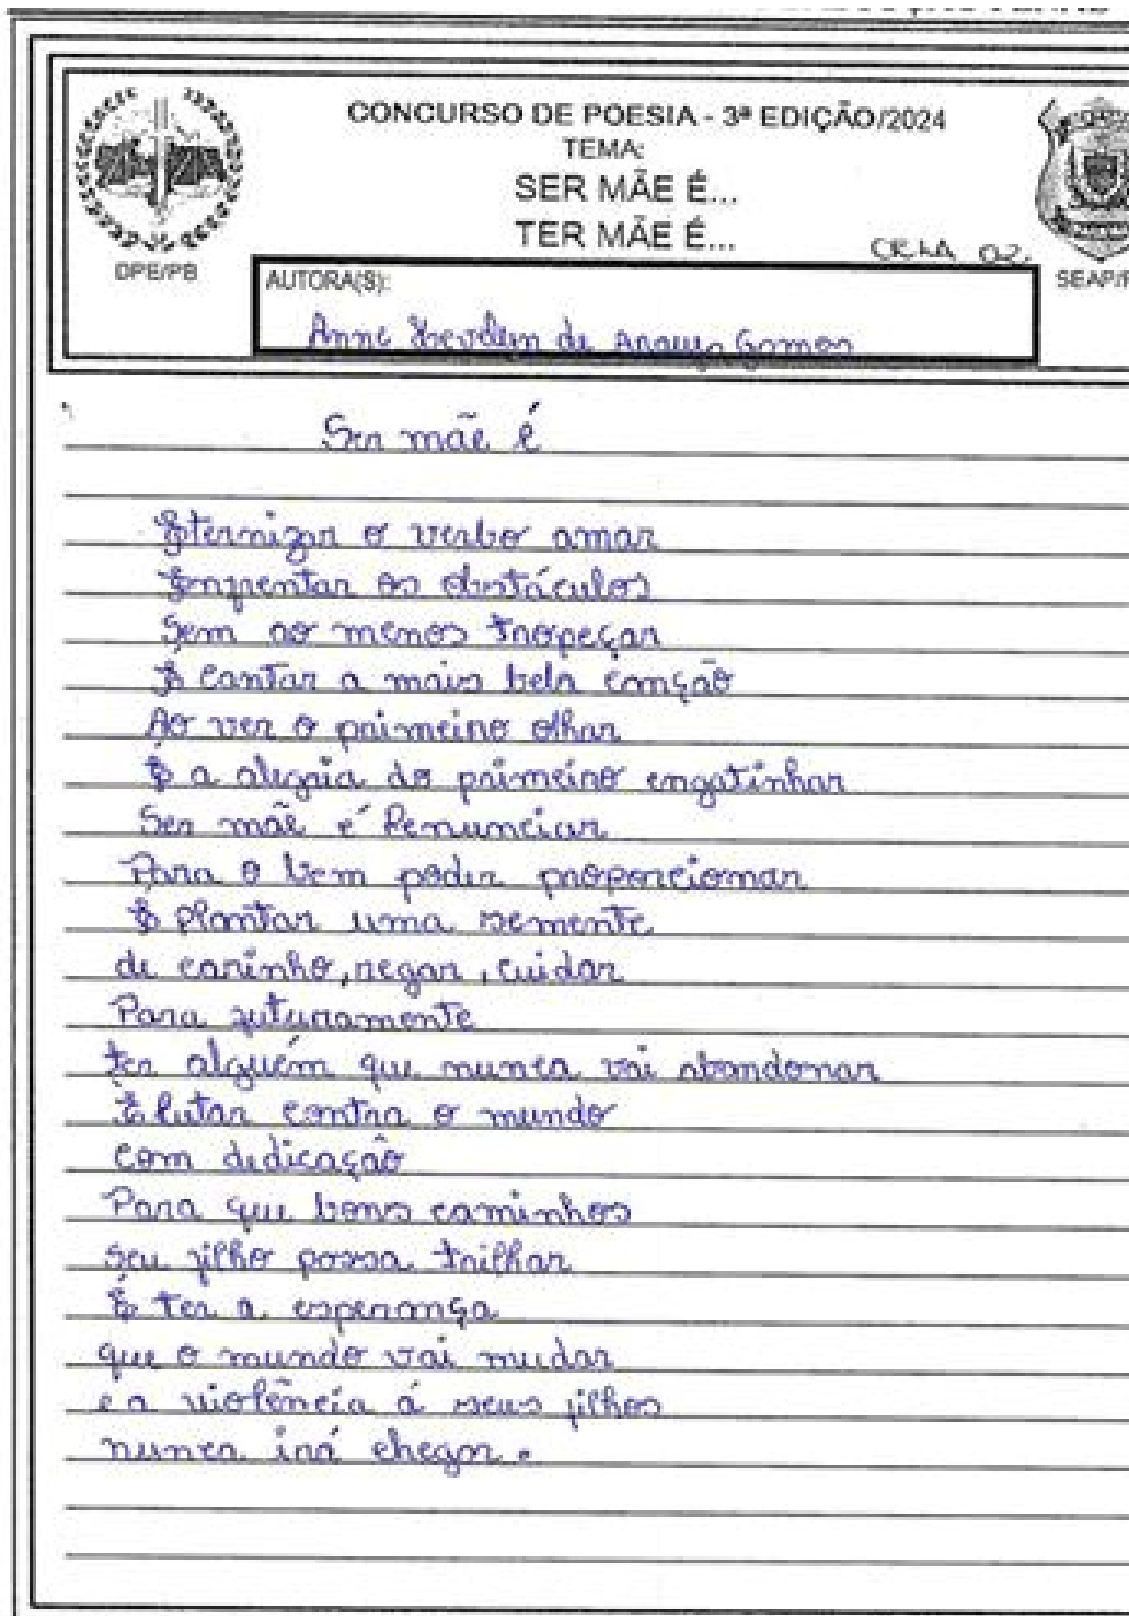 CONCURSO DE POESIA - 3ª EDIÇÃO/2024
TEMA:
SER MÃE É...
TER MÃE É...
CELA 02.
DPE/PB
SEAP/P
AUTORA(S):
Anne de Araujo Gomes
Ser mãe é
Eternizar o verbo amar
Enfrentar os obstáculos
Sem ao menos tropeçar
É cantar a mais bela canção
Ao ver o primeiro olhar
É a alegria do primeiro engatinhar
Ser mãe é Renunciar
Para o bem poder proporcionar
É plantar uma semente
de carinho, regar, cuidar
Para futuramente
ter alguém que nunca vai abandonar
É lutar contra o mundo
com dedicação
Para que bons caminhos
seu filho possa trilhar
É ter a esperança
que o mundo vai mudar
e a violência á seus filhos
nunca irá chegar.